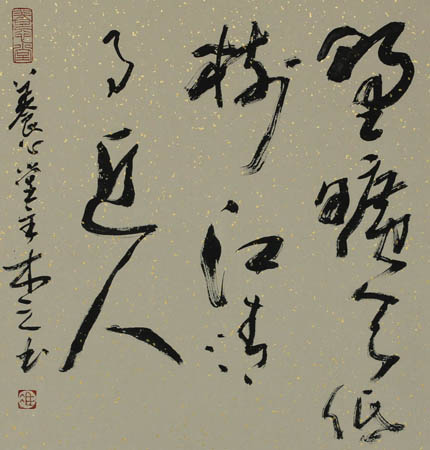 野曠天低
樹江清
月近人
養心堂主木之书